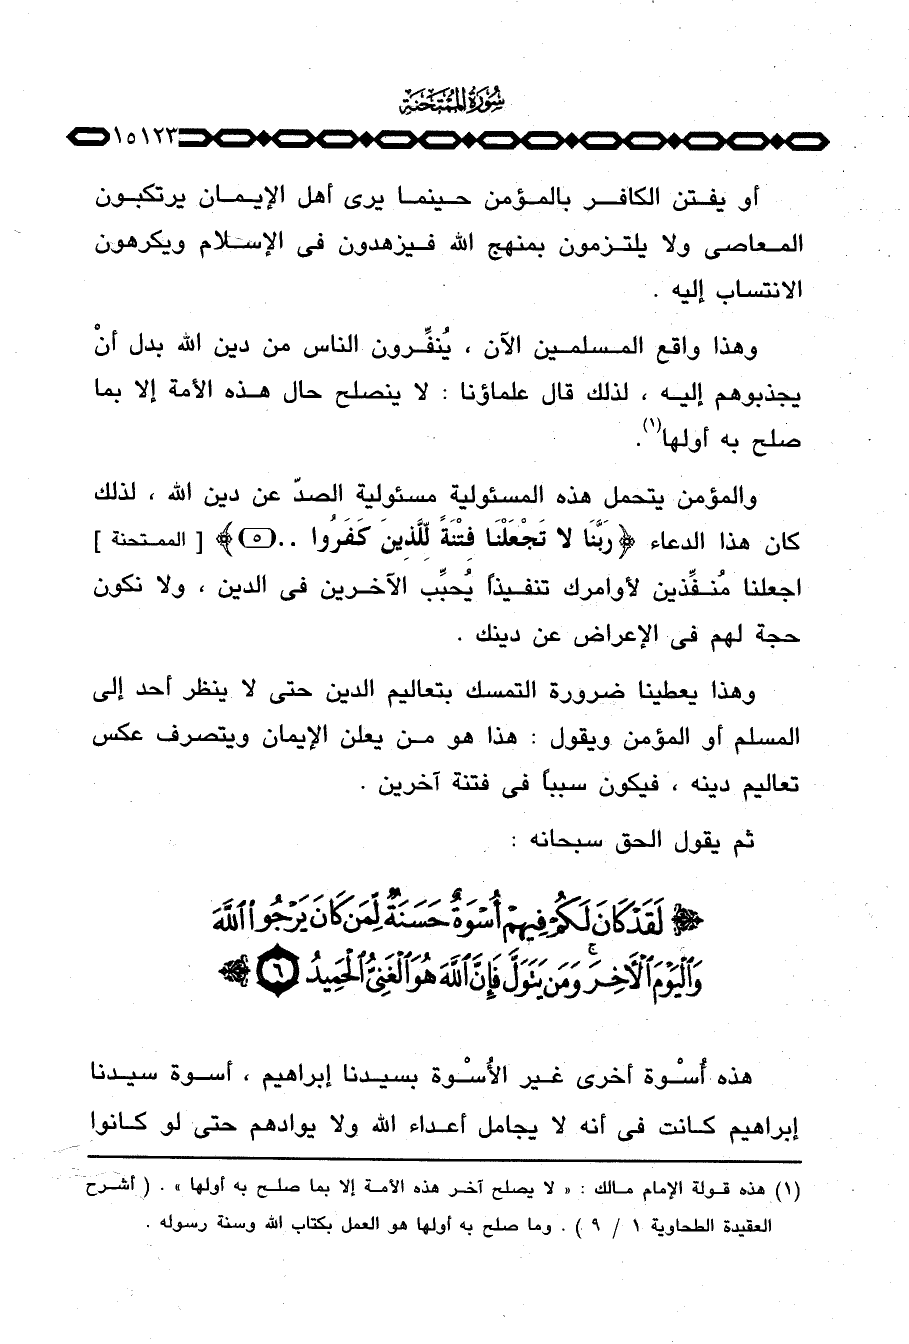 سُورَةُ المُمْتَحنَة
١٥١٢٣
أو يفـتن الكافـر بالمـؤمن حـينمـا يرى أهل الإيمـان يرتكبون
المـعاصى ولا يلتـزمون بمنهج الله فـيزهدون فى الإسـلام ويكرهون
الانتساب إليه .
وهذا واقع المـسلمـين الآن ، يُنفِّـرون الناس من دين الله بدل أنْ
يجذبوهم إليـه ، لذلك قال علماؤنا : لا ينصلح حال هـذه الأمة إلا بما
صلح به أولها(١).
والمؤمن يتحمل هذه المسئولية مسئولية الصدّ عن دين الله ، لذلك
كان هذا الدعاء ﴿رَبَّنَا لا تَجْعَلْنَا فِتْنَةً لِّلَّذِينَ كَفَرُوا ..(٥)﴾ [ الممـتحنة ]
اجعلنا مُنـفِّذين لأوامرك تنفـيذاً يُحبِّب الآخـرين فى الدين ، ولا نكون
حجة لهم فى الإعراض عن دينك .
وهذا يعطينا ضرورة التمسك بتعاليم الدين حتى لا ينظر أحد إلى
المسلم أو المؤمن ويقول : هذا هو مـن يعلن الإيمان ويتصرف عكس
تعاليم دينه ، فيكون سبباً فى فتنة آخرين .
ثم يقول الحق سبحانه :
﴿لَقَدْ كَانَ لَكُمْ فِيهِمْ أُسْوَةٌ حَسَنَةٌ لِّمَن كَانَ يَرْجُوا اللَّهَ
وَالْيَوْمَ الْآخِرَ ۚ وَمَن يَتَوَلَّ فَإِنَّ اللَّهَ هُوَ الْغَنِيُّ الْحَمِيدُ (٦)﴾
هذه أُسْوة أخرى غـير الأُسْـوة بسيدنا إبراهيم ، أسـوة سيـدنا
إبراهيم كـانت فى أنه لا يجامل أعـداء الله ولا يوادهم حتى لو كـانوا
(١) هذه قـولة الإمام مـالك : « لا يصلح آخـر هذه الأمـة إلا بما صلـح به أولها » . ( أشـرح
العقيدة الطحاوية ١ / ٩ ) . وما صلح به أولها هو العمل بكتاب الله وسنة رسوله .